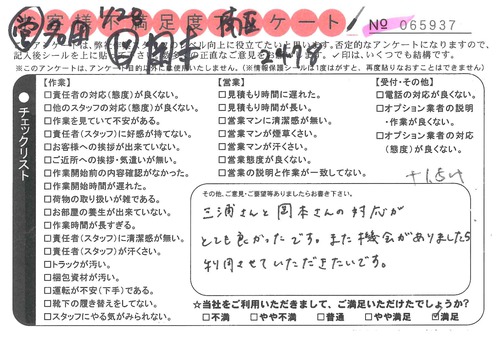 お客様満足度アンケート！ No 065937
1/28 南区
24718
本アンケートは、弊社サービスのレベル向上に役立てたいと思います。否定的なアンケートになりますので、
※このアンケートは、アンケート目的以外に使用いたしません。（※情報保護シールは1度はがすと、再度貼りなおすことはできません）
チェックリスト
【作業】
□責任者の対応（態度）が良くない。
□他のスタッフの対応（態度）が良くない。
□作業を見ていて不安がある。
□責任者（スタッフ）に好感が持てない。
□お客様への挨拶が出来ていない。
□ご近所への挨拶・気遣いが無い。
□作業開始前の内容確認がなかった。
□作業開始時間が遅れた。
□荷物の取り扱いが雑である。
□お部屋の養生が出来ていない。
□作業時間が長すぎる。
□責任者（スタッフ）に清潔感が無い。
□責任者（スタッフ）が汗くさい。
□トラックが汚い。
□梱包資材が汚い。
□運転が不安（下手）である。
□靴下の履き替えをしてない。
□スタッフにやる気がみられない。
【営業】
□見積もり時間に遅れた。
□見積もり時間が長い。
□営業マンに清潔感が無い。
□営業マンが煙草くさい。
□営業マンが汗くさい。
□営業態度が良くない。
□営業の説明と作業が一致してない。
【受付・その他】
□電話の対応が良くない。
□オプション業者の説明
・作業が良くない。
□オプション業者の対応
（態度）が良くない。
その他、ご意見・ご要望等ありましたらお書き下さい。
三浦さんと岡本さんの対応が
とても良かったです。また機会がありましたら
利用させていただきたいです。
☆当社をご利用いただきまして、ご満足いただけたでしょうか？
□不満 □やや不満 □普通 □やや満足 ☑満足